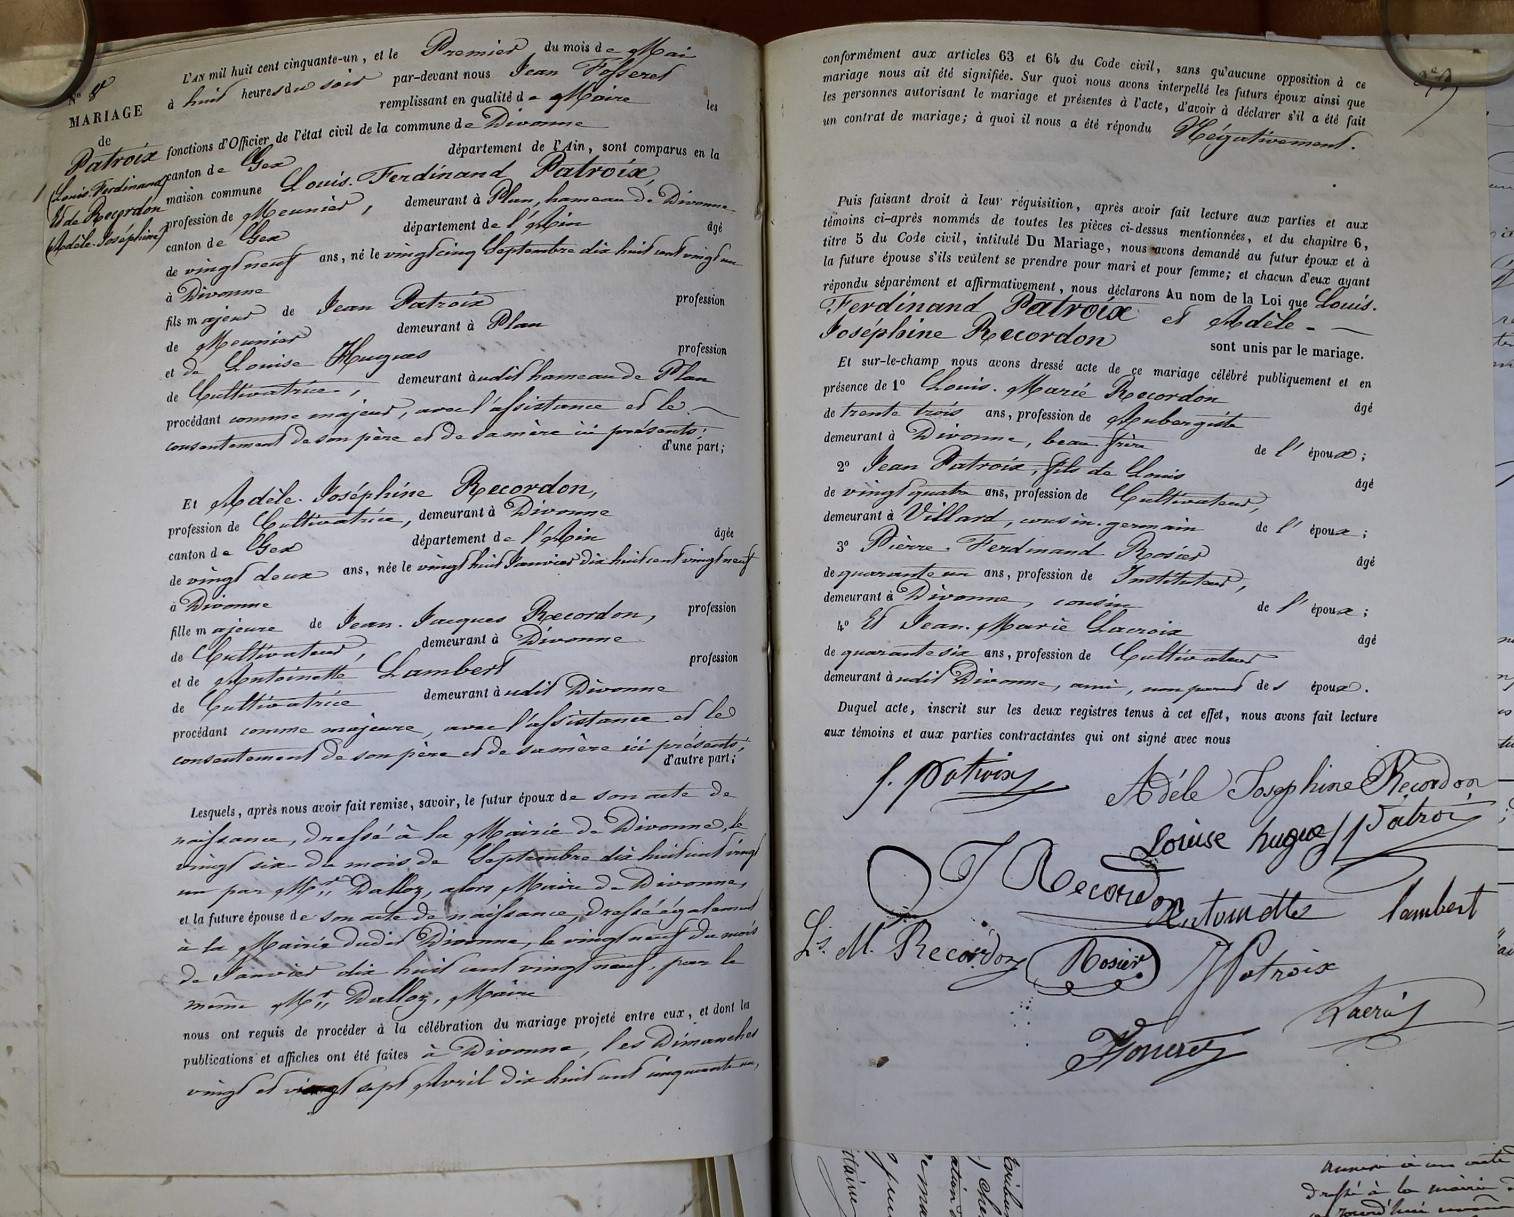 N° 8
MARIAGE
de
Patroix
(Louis. Ferdinand)
Et de Recordon
(Adèle. Joséphine)
L'AN mil huit cent cinquante-un, et le Premier du mois de Mai
à huit heures du soir par-devant nous Jean
remplissant en qualité de Maire les
fonctions d'Officier de l'état civil de la commune de Divonne
canton de Gex département de l'Ain, sont comparus en la
maison commune Louis. Ferdinand Patroix,
profession de Meunier, demeurant à Plan, hameau de Divonne
canton de Gex département de l'Ain âgé
de vingt neuf ans, né le vingt cinq Septembre dix huit cent vingt un
à Divonne
fils majeur de Jean Patroix profession
de Meunier demeurant à Plan
et de Louise Hugues profession
de Cultivatrice, demeurant audit hameau de Plan
procédant comme majeur, avec l'assistance et le
consentement de son père et de sa mère ici présents;
d'une part;
Et Adèle. Joséphine Recordon,
profession de Cultivatrice, demeurant à Divonne
canton de Gex département de l'Ain âgée
de vingt deux ans, née le vingt huit Janvier dix huit cent vingt neuf
à Divonne
fille majeure de Jean. Jacques Recordon, profession
de Cultivateur, demeurant à Divonne
et de Antoinette Lambert profession
de Cultivatrice demeurant audit Divonne
procédant comme majeure, avec l'assistance et le
consentement de son père et de sa mère ici présents;
d'autre part;
Lesquels, après nous avoir fait remise, savoir, le futur époux de son acte de
naissance, dressé à la Mairie de Divonne, le
vingt six du mois de Septembre dix huit cent vingt
un par Mr. Dalloz, alors Maire de Divonne,
et la future épouse de son acte de naissance, dressé également
à la Mairie dudit Divonne, le vingt neuf du mois
de Janvier dix huit cent vingt neuf, par le
même Mr. Dalloz, Maire
nous ont requis de procéder à la célébration du mariage projeté entre eux, et dont les
publications et affiches ont été faites à Divonne, les Dimanches
vingt et vingt sept Avril dix huit cent cinquante un,
conformément aux articles 63 et 64 du Code civil, sans qu'aucune opposition à ce
mariage nous ait été signifiée. Sur quoi nous avons interpellé les futurs époux ainsi que
les personnes autorisant le mariage et présentes à l'acte, d'avoir à déclarer s'il a été fait
un contrat de mariage; à quoi il nous a été répondu Négativement.
Puis faisant droit à leur réquisition, après avoir fait lecture aux parties et aux
témoins ci-après nommés de toutes les pièces ci-dessus mentionnées, et du chapitre 6,
titre 5 du Code civil, intitulé Du Mariage, nous avons demandé au futur époux et à
la future épouse s'ils veulent se prendre pour mari et pour femme; et chacun d'eux ayant
répondu séparément et affirmativement, nous déclarons Au nom de la Loi que Louis.
Ferdinand Patroix et Adèle -
Joséphine Recordon sont unis par le mariage.
Et sur-le-champ nous avons dressé acte de ce mariage célébré publiquement et en
présence de 1° Louis. Marie Recordon âgé
de trente trois ans, profession de Aubergiste
demeurant à Divonne, beau frère de l'époux;
2° Jean Patroix, fils de Louis âgé
de vingt quatre ans, profession de Cultivateur,
demeurant à Villard, cousin. germain de l'époux;
3° Pierre. Ferdinand Rosier âgé
de quarante un ans, profession de Instituteur,
demeurant à Divonne, cousin de l'époux;
4° Et Jean. Marie Lacroix âgé
de quarante six ans, profession de Cultivateur
demeurant audit Divonne, ami, non parent des époux.
Duquel acte, inscrit sur les deux registres tenus à cet effet, nous avons fait lecture
aux témoins et aux parties contractantes qui ont signé avec nous
f. patroix
Adéle Josephine Recordon
Louise hugue
Patroi
J Recordon
Antoinette lambert
Ls. M. Recordon
Rosier
J Patroix